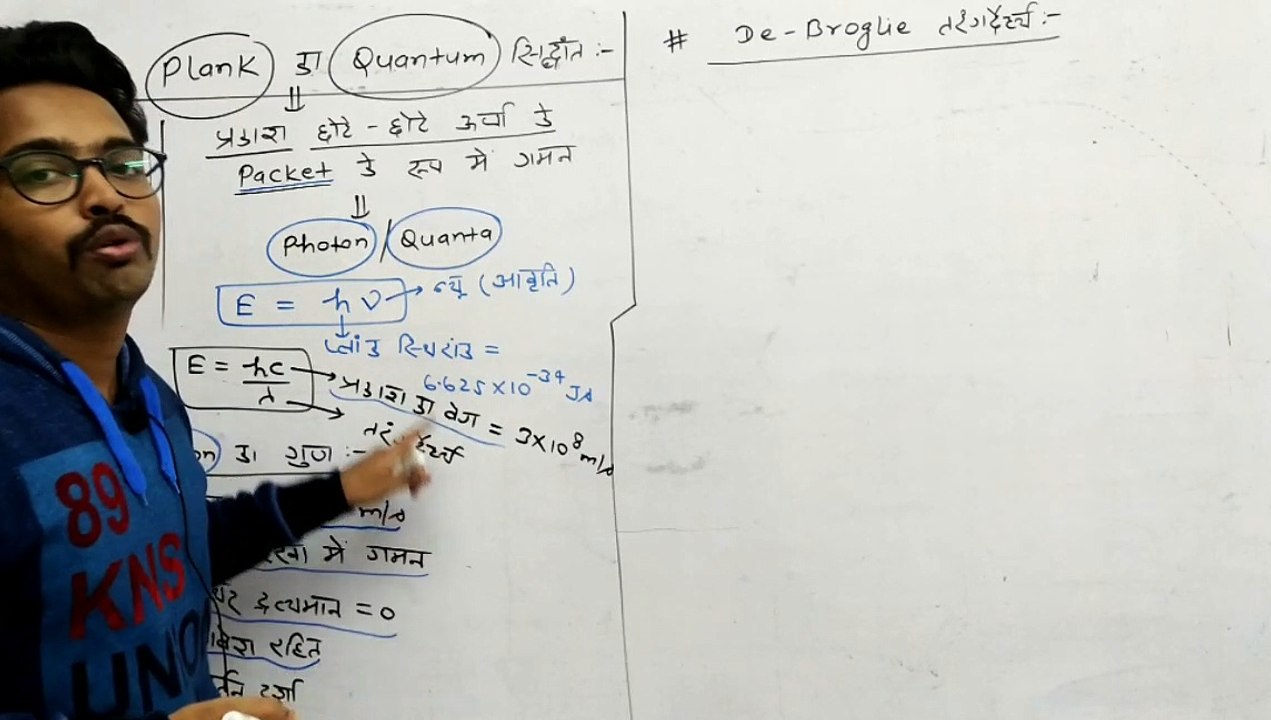 Plank का Quantum सिद्धांत :-
⇓
प्रकाश छोटे - छोटे ऊर्जा के
Packet के रूप में गमन
⇓
Photon / Quanta
E = hν → न्यू (आवृति)
प्लांक स्थिरांक =
6.625×10⁻³⁴ Js
E = hc/λ → प्रकाश का वेग = 3×10⁸ m/s
का गुण :-
m/s
में गमन
द्रव्यमान = 0
रहित
# De-Broglie तरंगदैर्ध्य :-
89
KNS